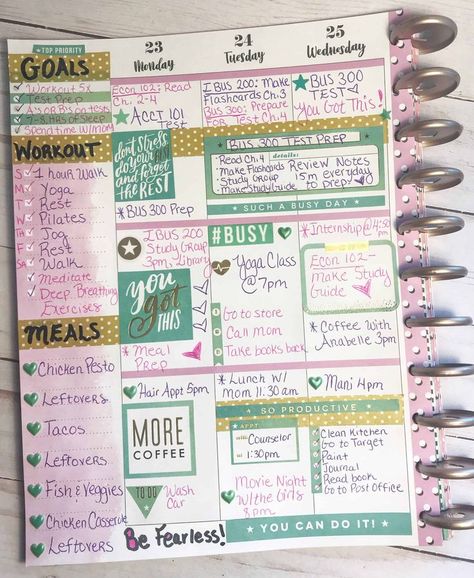 TOP PRIORITY
GOALS
Workout 5x
Test Prep
A's or B's on tests
7-8 Hrs of Sleep
Spend time w/mom
WORKOUT
S 1 hour Walk
M Yoga
T Rest
W Pilates
T Jog
F Rest
SA Walk
Meditate
Deep Breathing
Exercises
MEALS
Chicken Pesto
Leftovers
Tacos
Leftovers
Fish & Veggies
Chicken Casserole
Leftovers
23
Monday
Econ 102: Read
Ch. 2-4
ACCT 101
Test
don't stress
do your
and forget
the REST
*BUS 300 Prep
I BUS 200
Study Group
3pm, Library
you
got
THIS
*Meal
Prep
Hair Appt 5pm
MORE
COFFEE
TO DO
Wash
Car
Be Fearless!
24
Tuesday
I BUS 200: Make
Flashcards Ch. 3
BUS 300: Prepare
For Test Ch. 4
BUS 300 TEST PREP
details:
Read Ch. 4
Make Flashcards
Study Group
Make Study Guide
Review Notes
15m everyday
to prep
SUCH A BUSY DAY
#BUSY
Yoga Class
@ 7pm
1 Go to store
2 Call Mom
3 Take books back
*Lunch W/
Mom 11:30 am
SO PRODUCTIVE
APPT
with: Counselor
at: 1:30pm
Movie Night
W/the Girls
8pm
25
Wednesday
BUS 300
TEST
You Got This!
*Internship @ 4:30
Econ 102-
Make Study
Guide
*Coffee With
Anabelle 3pm
Mani 4pm
Clean Kitchen
Go to Target
Paint
Journal
Read book
Go to Post Office
YOU CAN DO IT!